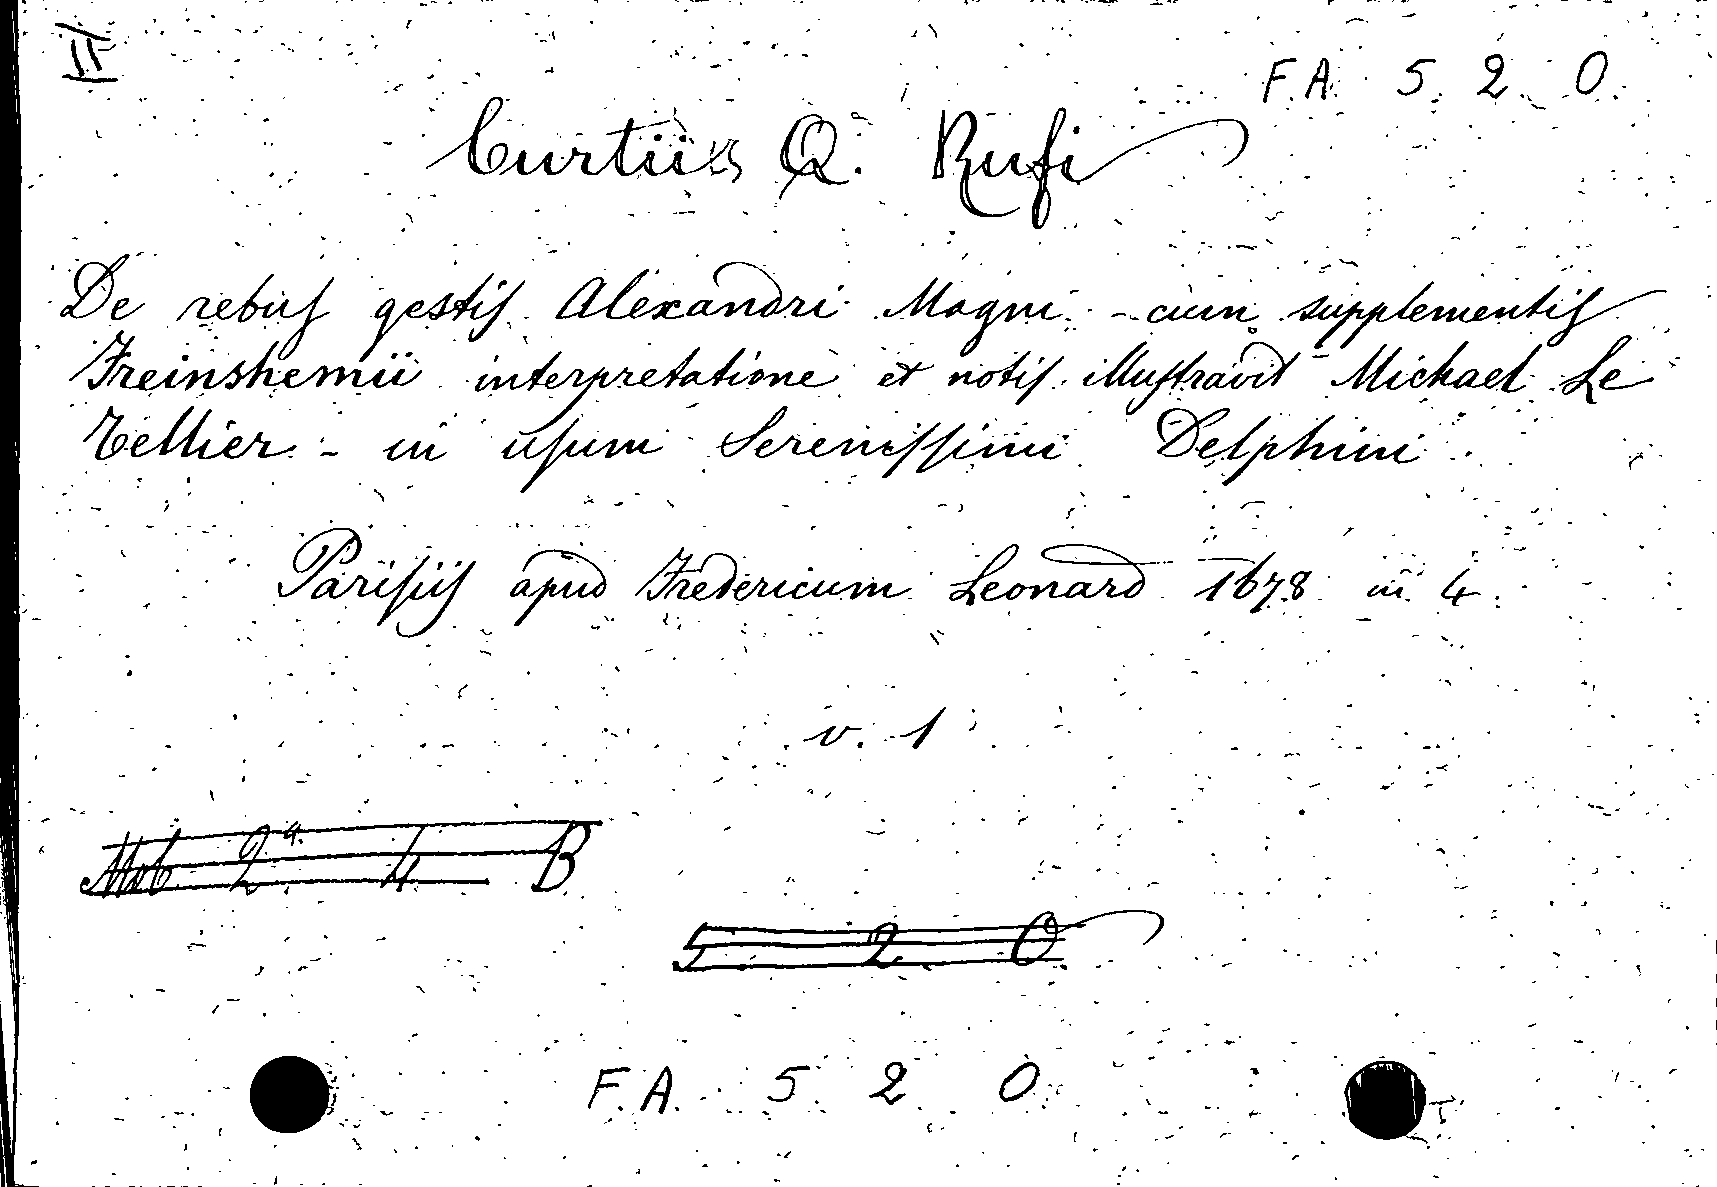 II
F. A. 5. 2. 0.
Curtiis Q. Rufi
De rebus gestis Alexandri Magni - cum supplementis
Freinshemii interpretatione et notis illustravit Michael Le
Tellier - in usum Serenissimi Delphini
Parisiis apud Fredericum Leonard 1678 in 4.
v. 1
Mob 2ª 4 B
5 2 0.
F. A. 5. 2. 0